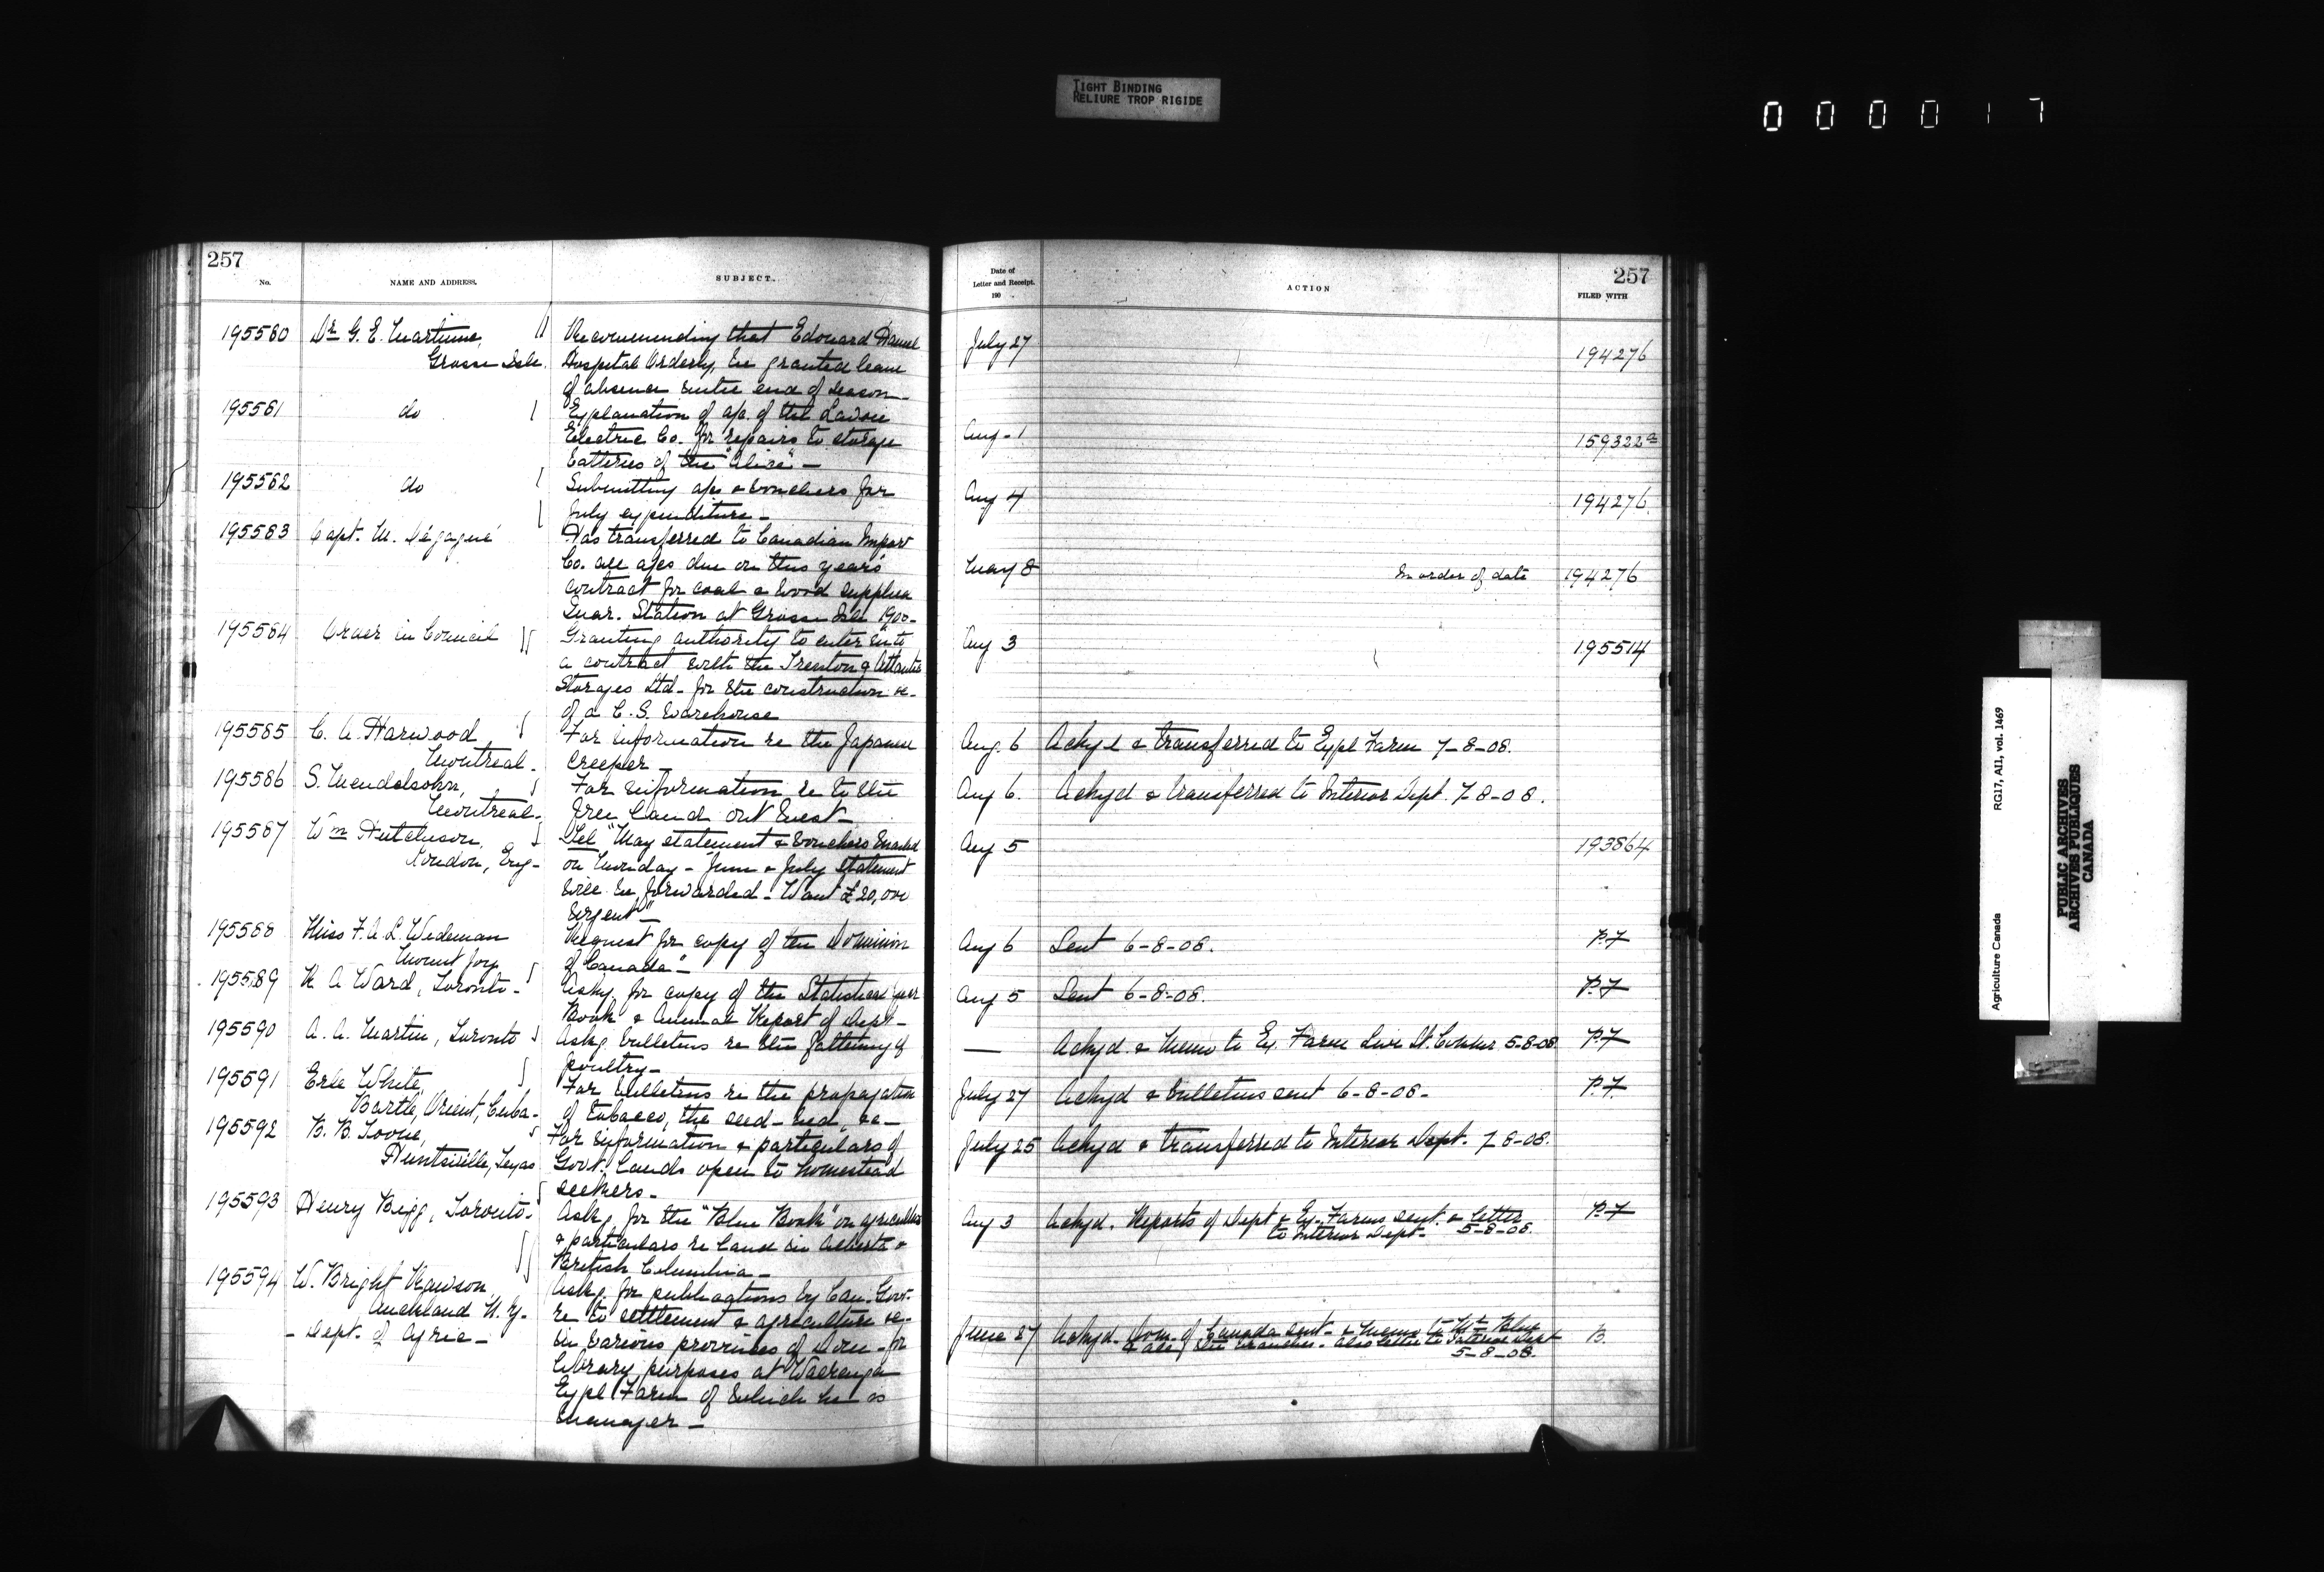 TIGHT BINDING
RELIURE TROP RIGIDE
0 0 0 0 1 7
257
No.
NAME AND ADDRESS.
SUBJECT.
195580
Dr G. E. Martineau,
Grosse Isle.
Recommending that Edouard Hamel
Hospital Orderly, be granted leave
of absence until end of season
195581
do
Explanation of a/c of the
Electric Co. for repairs to storage
batteries of the "Alice" —
195582
do
Submitting a/cs & vouchers for
July expenditure —
195583
Capt. M.
Has transferred to Canadian Import
Co. all a/cs due on this year's
contract for coal & wood supplied
Quar. Station at Grosse Isle
195584
Order in Council
Granting authority to enter into
a contract with the Trenton & Atlantic
Storages Ltd - for the construction &c -
of a C. S. warehouse
195585
C. A. Harwood
Montreal -
For information re the Japanese
creeper —
195586
S. Mendelsohn,
Montreal -
For information re to the
free land out west —
195587
Wm Hutchison,
London, Eng -
Tel "May statement & vouchers mailed
on Monday - June & July statement
will be forwarded - Want £20,000
urgent"
195588
Miss F. A. L. Wedeman
Mount Joy
Request for copy of the Dominion
of Canada" —
195589
K A Ward, Toronto -
Askg. for copy of the Statistical year
Book & Annual Report of Dept —
195590
A. A. Martin, Toronto
Askg bulletins re the fattening of
poultry —
195591
Erle White,
Bartle, Orient, Cuba -
For bulletins re the propagation
of tobacco, the seed-bed, &c —
195592
B. B. Toone,
Huntsville, Texas
For information & particulars of
Govt. lands open to homestead
seekers —
195593
Henry Bigg, Toronto -
Askg for the "Blue Book" on agriculture
& particulars re land in Alberta &
British Columbia —
195594
W. Bright Rawson
Auckland N. Z. -
- Dept. of Agric -
Askg. for publications by Can. Govt.
re to settlement & agriculture &c -
in various provinces of Dom - for
library purposes at Waerenga
Expl Farm of which he is
manager —
Date of
Letter and Receipt.
190
ACTION
257
FILED WITH
July 27
194276
Aug - 1
159322
Aug 4
194276.
May 8
In order of date
194276
Aug 3
195514
Aug. 6
Ackyd & transferred to Expl Farm 7-8-08.
Aug 6.
Ackyd & transferred to Interior Dept. 7-8-08.
Aug 5
193864
Aug 6
Sent 6-8-08.
P.7
Aug 5
Sent 6-8-08.
P.7
—
Ackyd. & Memo to Ex. Farm Live St. 5-8-08.
P.7
July 27
Ackyd & bulletins sent 6-8-08 -
P.7
July 25
Ackyd & transferred to Interior Dept. 7-8-08.
Aug 3
Ackyd. Reports of Dept & Ex. Farms sent. & letter
to Interior Dept - 5-8-08.
P.7
June 27
Ackyd. Dom. of Canada sent - & Memo to Mr Blue
& all of the branches. also letter to Interior Dept
5-8-08.
B.
Agriculture Canada
RG17, AII, vol. 1469
PUBLIC ARCHIVES
ARCHIVES PUBLIQUES
CANADA